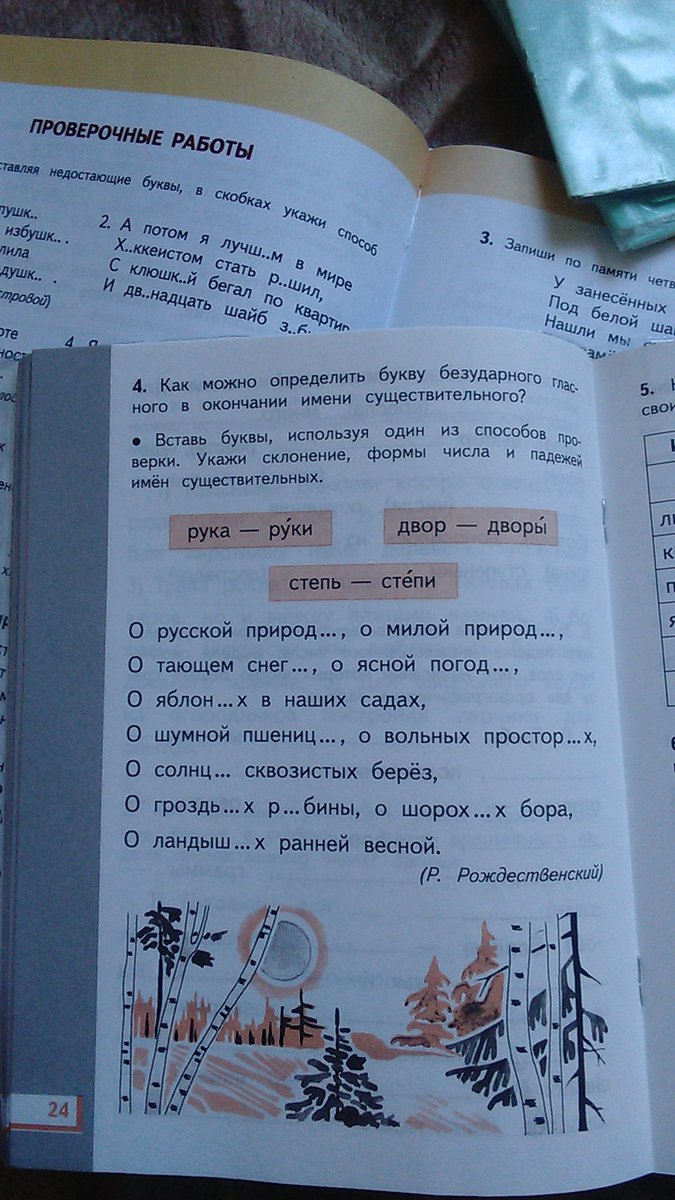 ПРОВЕРОЧНЫЕ РАБОТЫ
недостающие буквы, в скобках укажи способ
2. А потом я лучш..м в мире
Х..ккеистом стать р..шил,
С клюшк..й бегал по квартир
И дв..надцать шайб
3. Запиши по памяти
У занесённых
Под белой
Нашли мы
избушк.. .
4. Как можно определить букву безударного глас-
ного в окончании имени существительного?
● Вставь буквы, используя один из способов про-
верки. Укажи склонение, формы числа и падежей
имён существительных.
рука — ру́ки двор — дворы́
степь — сте́пи
О русской природ..., о милой природ...,
О тающем снег..., о ясной погод...,
О яблон...х в наших садах,
О шумной пшениц..., о вольных простор...х,
О солнц... сквозистых берёз,
О гроздь...х р...бины, о шорох...х бора,
О ландыш...х ранней весной.
(Р. Рождественский)
24
5.